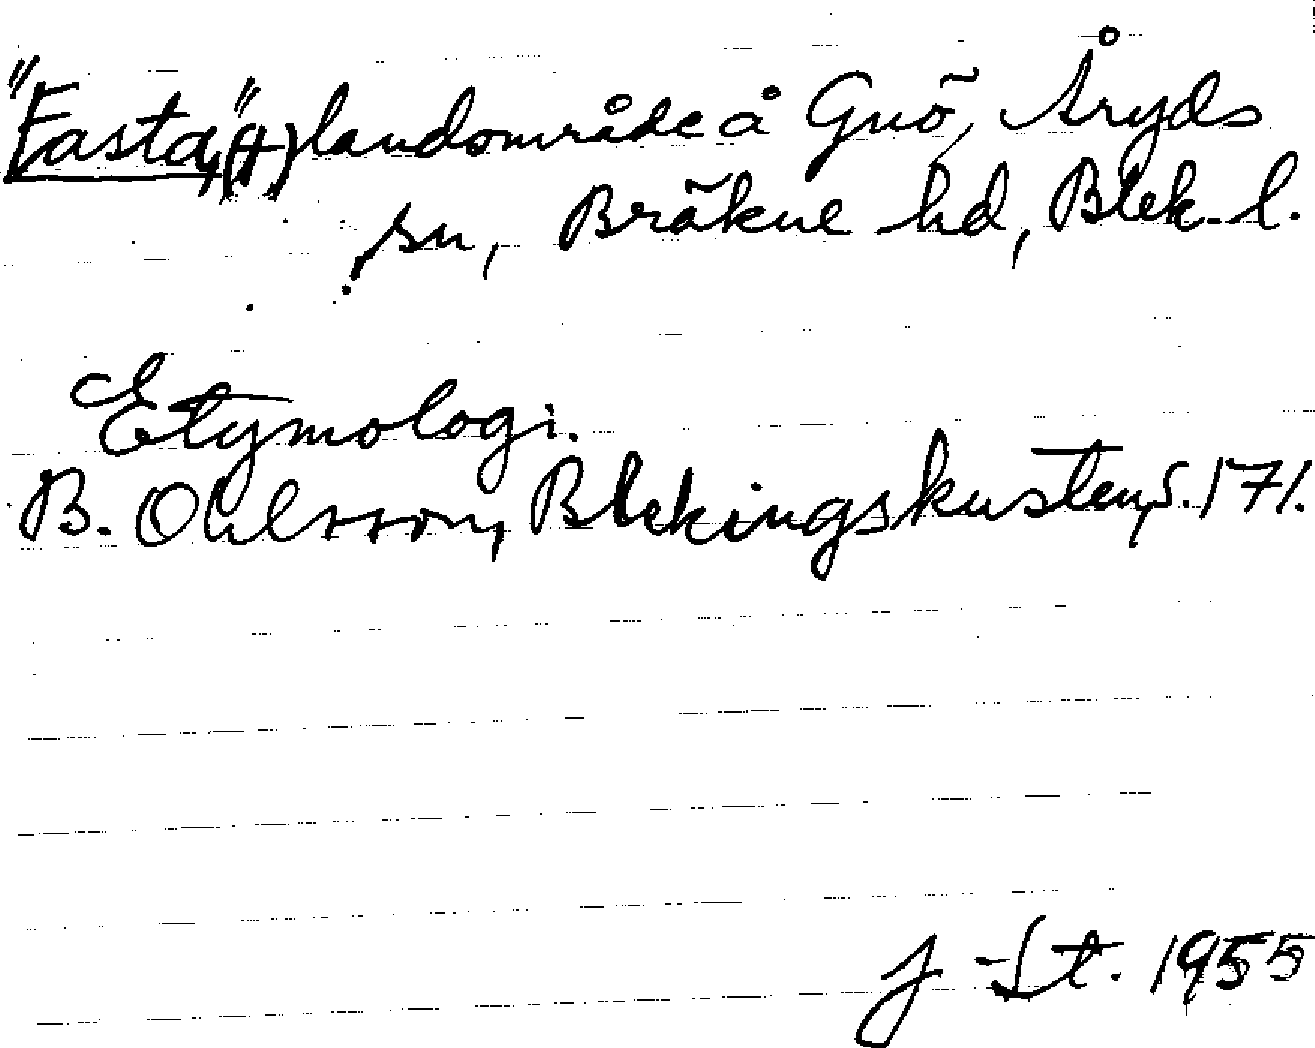 "Fasta," (†) landområde å Gnö, Åryds
sn, Bräkne hd, Blek. l.
Etymologi.
B. Ohlsson, Blekingskusten, s. 171.
J. St. 1955